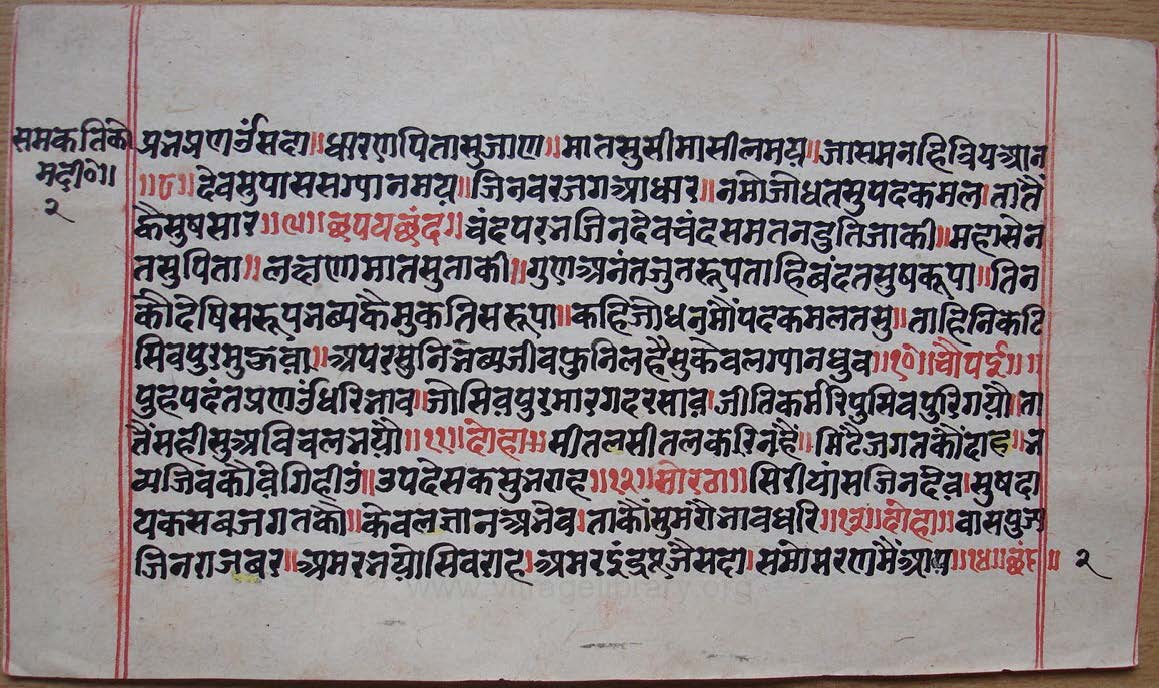 समकतिकौ
मदी०॥
२
प्रभप्रणउंसदा॥धारणपितासुजाण॥मातसुसीमासीलमय॥जासमनहित्रियआंन
॥८॥देवसुपाससग्यानमय॥जिनवरजगआधार॥नमोजोधतसुपदकमल।तातैं
कैसुषसार॥९॥छपयछंद॥चंदपरभजिनदेवचंदसमतनदुतिजाकी॥महासेन
तसुपिता॥लक्ष्मणामातसुताकी॥गुणअनंतजुतरूपताहिबंदतसुषकूपा॥तिन
कौदेषिसरूपभव्यकैमुकतिसरूपा॥कहिजोधनमौंपदकमलतसु॥ताहिनिकेटि
सिवपुरसुऊवा॥अपरसुनिभव्यजीवफुनिलहैसुकेवलग्यानधुव॥१०॥चौपई॥॥
पुहपदंतप्रणउंधरिभाव॥जोसिवपुरमारगदरसाव।जीतिकर्मरिपुसिवपुरिगयौ॥ता
तैंसहीसुअविचलभयौ॥११॥दोहा॥सीतलसीतलकरिनहैं॥मिटैजगतकौंदाह॥भ
व्यजिवकौवेगिहीउं॥उपदेसकसुभराह॥१२॥सोरठा॥सिरीयांसजिनदेव॥सुषदा
यकसबजगतकौ॥केवलज्ञानअभेव।ताकौंसुमंरौभावधरि॥१३॥दोहा॥वासपुज्य
जिनराजबर॥अमरभयोसिवराह।अमरइंद्रपूजैसदा।समोसरणमैंआय॥१४॥छंद॥
२
www.vittragelibrary.org